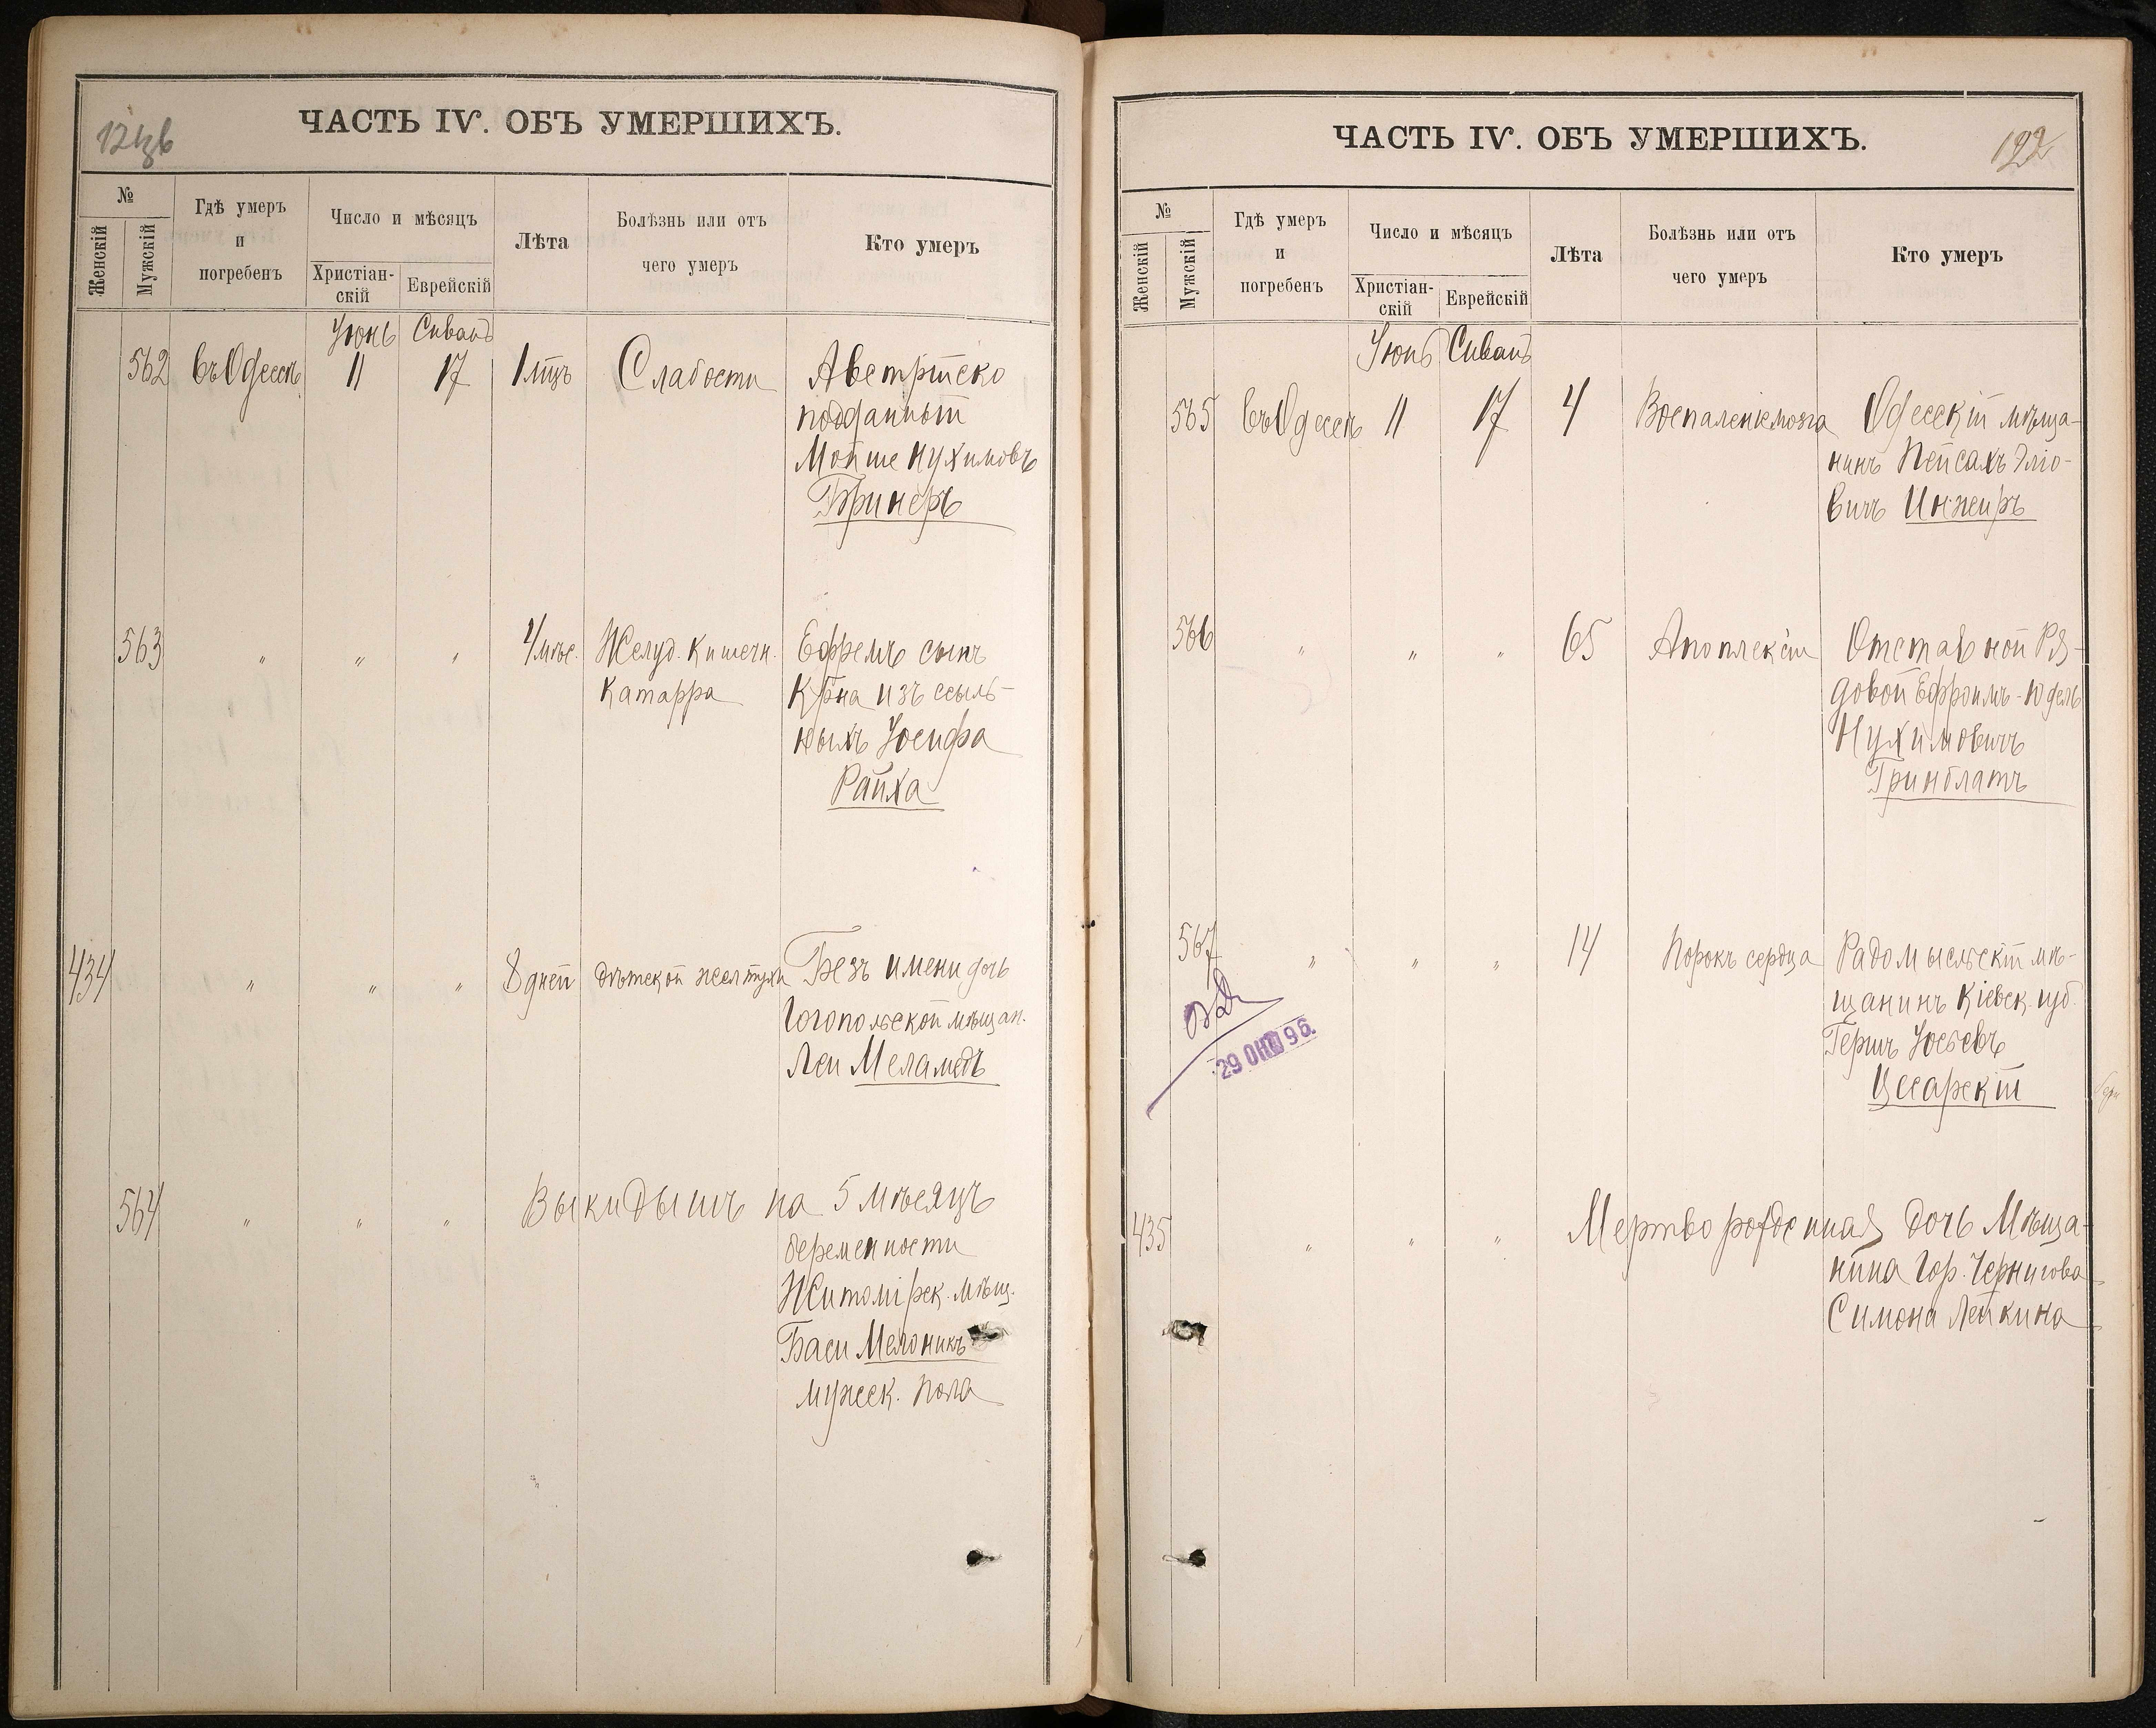 ЧАСТЬ IV. ОБЪ УМЕРШИХЪ.
№
Женскій
Мужскій
Гдѣ умеръ
и
погребенъ
Число и мѣсяцъ
Христіан-
скій
Еврейскій
Лѣта
Болѣзнь или отъ
чего умеръ
Кто умеръ
Іюнь Сиванъ
562 въ Одессѣ 11 17 1 мцъ Слабости Австрійско
подданный
Мойше Нухимовъ
Бринеръ
563 " " " 4 мѣс. Желуд. кишечн. Ефремъ сынъ
катарра Крна изъ ссыль-
ныхъ Іосифа
Райха
434 " " " 8 дней дѣтской желтухи Безъ имени дочь
Гогопольской мѣщан.
Леи Меламедъ
564 " " " Выкидышъ на 5 мѣсяцъ
беременности
Житомірск. мѣщ.
Баси Мелоникъ
мужск. пола
ЧАСТЬ IV. ОБЪ УМЕРШИХЪ.
122
№
Женскій
Мужскій
Гдѣ умеръ
и
погребенъ
Число и мѣсяцъ
Христіан-
скій
Еврейскій
Лѣта
Болѣзнь или отъ
чего умеръ
Кто умеръ
Іюнь Сиванъ
565 въ Одессѣ 11 17 4 Воспаленіе мозга Одесскій мѣща-
нинъ Пейсахъ Эліо-
вичъ Инжиръ
566 " " " 65 Апоплексіи Отставной Ря-
довой Ефроимъ-Юдель
Нухимовичъ
Гринблатъ
567 " " " 14 Порокъ сердца Радомысльскій мѣ-
щанинъ Кіевск. губ.
Гершъ Іосьевъ
Цесарскій
29 96.
435 " " " Мертворожденная дочь Мѣща-
нина Гор. Чернигова
Симона Лейкина